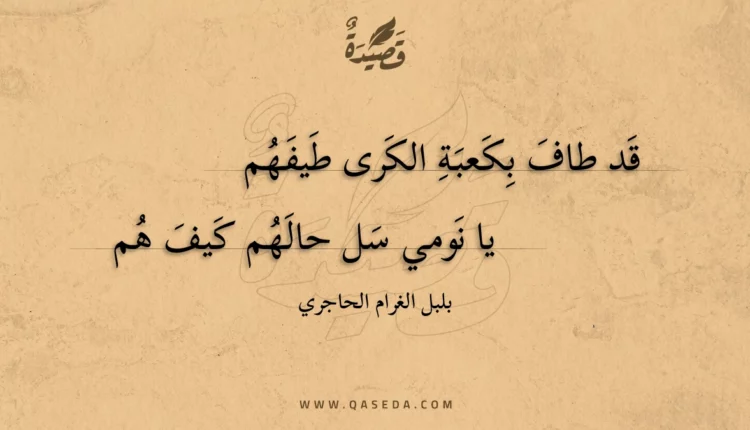 قَصِيْدَةٌ
قَد طافَ بِكَعبَةِ الكَرى طَيفَهُم
يا نَومي سَل حالَهُم كَيفَ هُم
بلبل الغرام الحاجري
WWW.QASEDA.COM